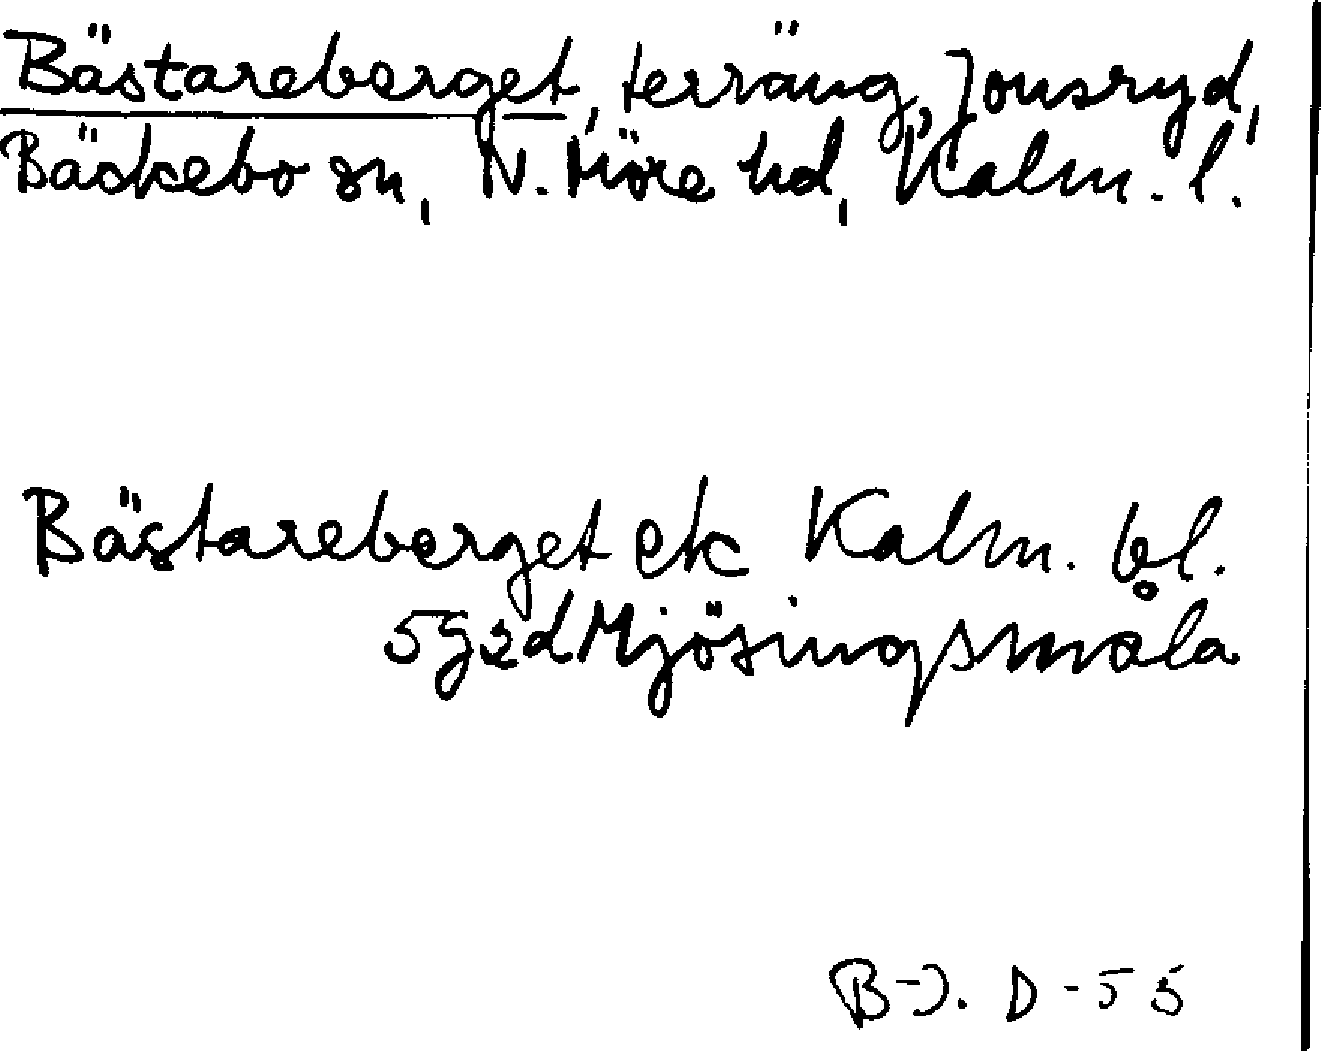 Bästareberget, terräng, Jonsryd,
Bäckebo sn, N. Möre hd, Kalm. l.
Bästareberget ek Kalm. bl.
5G2d Mjösingsmåla
B-J. D-55